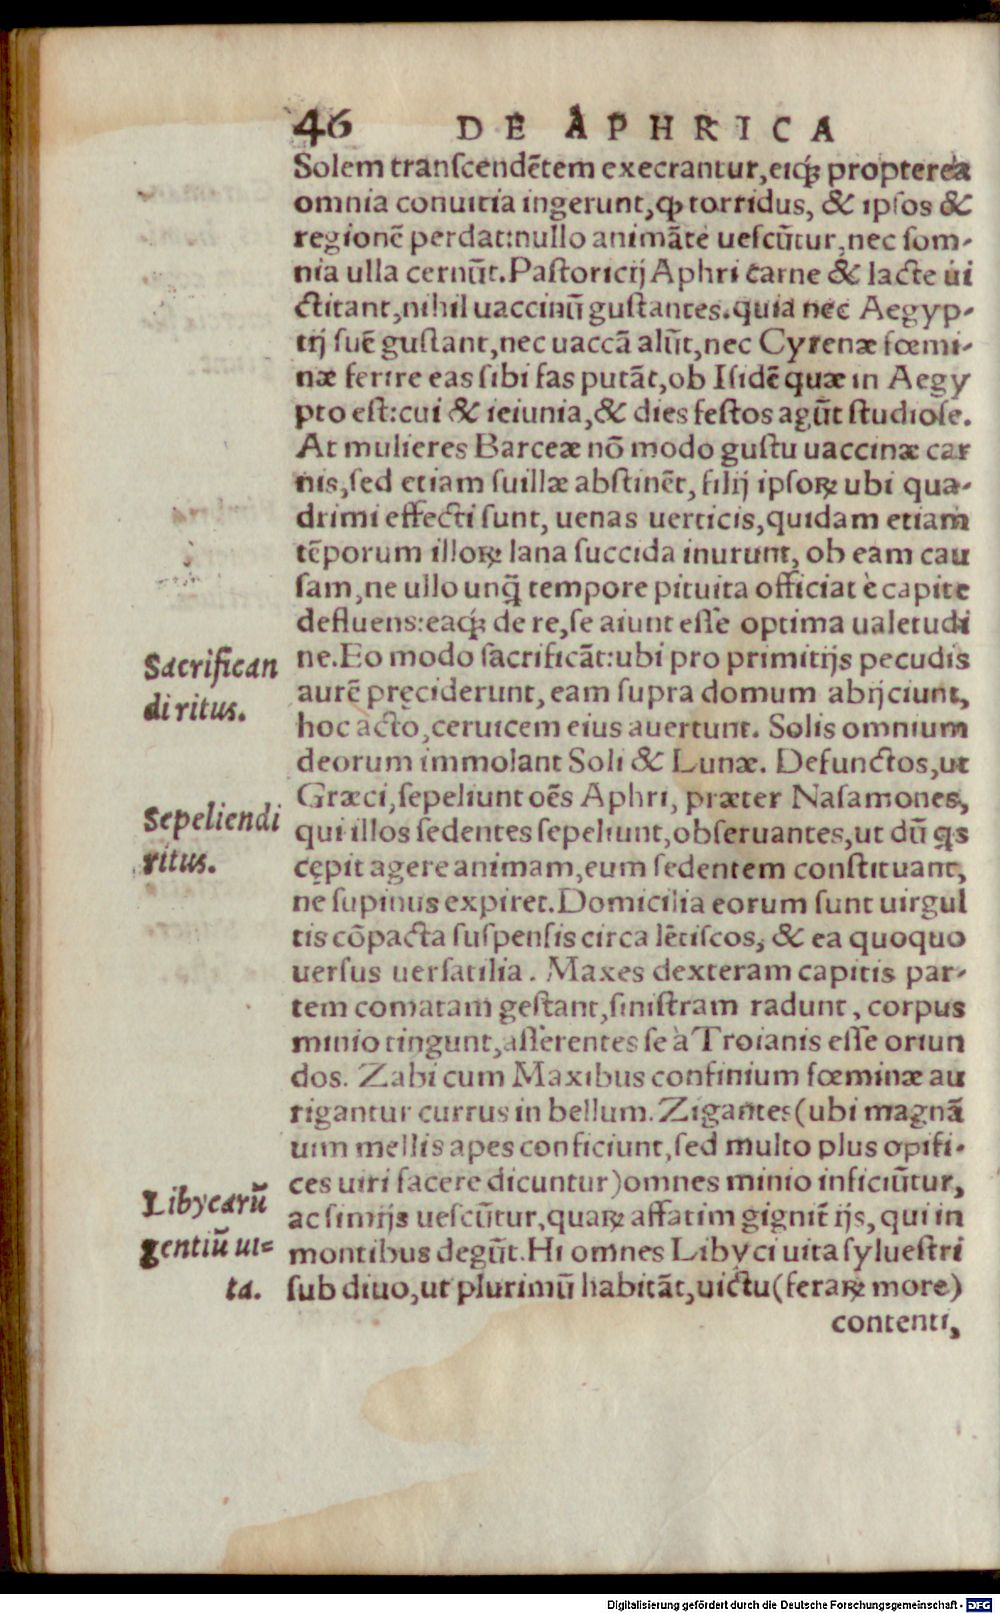 46 DE APHRICA
Solem transcendētem execrantur, eiq́ꝫ propterea
omnia conuitia ingerunt, ꝙ torridus, & ipsos &
regionē perdat: nullo animāte uescūtur, nec som-
nia ulla cernūt. Pastoricij Aphri carne & lacte ui
ctitant, nihil uaccinū gustantes. quia nec Aegyp-
tij suē gustant, nec uaccā alūt, nec Cyrenæ fœmi-
næ ferire eas sibi fas putāt, ob Isidē quæ in Aegy
pto est: cui & ieiunia, & dies festos agūt studiose.
At mulieres Barceæ nō modo gustu uaccinæ car
nis, sed etiam suillæ abstinēt, filij ipsoꝝ ubi qua-
drimi effecti sunt, uenas uerticis, quidam etiam
tēporum illoꝝ lana succida inurunt, ob eam cau
sam, ne ullo unq̄ tempore pituita officiat è capite
defluens: eaq́ꝫ de re, se aiunt esse optima ualetudi
ne. Eo modo sacrificāt: ubi pro primitijs pecudis
aurē pręciderunt, eam supra domum abijciunt,
hoc acto, ceruicem eius auertunt. Solis omnium
deorum immolant Soli & Lunæ. Defunctos, ut
Græci, sepeliunt oēs Aphri, præter Nasamones,
qui illos sedentes sepeliunt, obseruantes, ut dū qs
cępit agere animam, eum sedentem constituant,
ne supinus expiret. Domicilia eorum sunt uirgul
tis cōpacta suspensis circa lētiscos, & ea quoquo
uersus uersatilia. Maxes dexteram capitis par-
tem comatam gestant, sinistram radunt, corpus
minio tingunt, asserentes se à Troianis esse oriun
dos. Zabi cum Maxibus confinium fœminæ au
rigantur currus in bellum. Zigantes (ubi magnā
uim mellis apes conficiunt, sed multo plus opifi-
ces uiri facere dicuntur) omnes minio inficiūtur,
ac simijs uescūtur, quaꝝ affatim gignīt ijs, qui in
montibus degūt. Hi omnes Libyci uita syluestri
sub diuo, ut plurimū habitāt, uictu (feraꝝ more)
contenti,
Sacrifican
di ritus.
Sepeliendi
ritus.
Libycarū
gentiū ui=
ta.
Digitalisierung gefördert durch die Deutsche Forschungsgemeinschaft - DFG